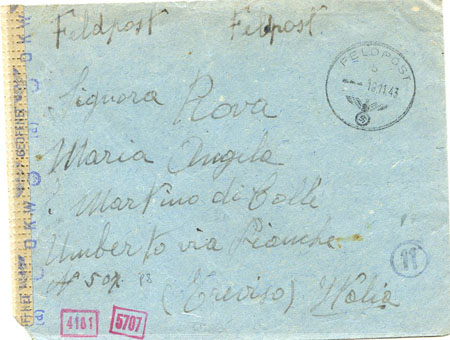 Feldpost Felpost
FELDPOST
18.11.43
Signora Rova
Maria Angela
S. Martino di Colle
Umberto via Pianche
N° 507
(Treviso) Italia
11
4181 5707
O.K.W.